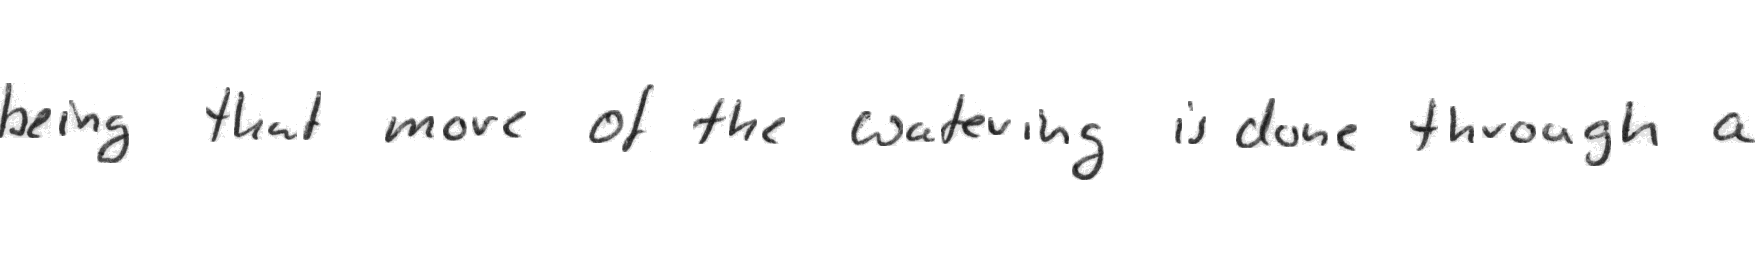 being that more of the watering is done through a